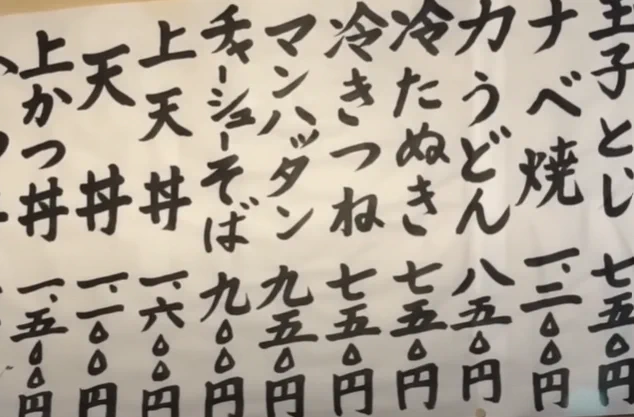 玉子とじ 七五〇円
ナベ焼 一、三〇〇円
力うどん 八五〇円
冷たぬき 七五〇円
冷きつね 七五〇円
マンハッタン 九五〇円
チャーシューそば 九〇〇円
上天丼 一、六〇〇円
天丼 一、一〇〇円
上かつ丼 一、五〇〇円